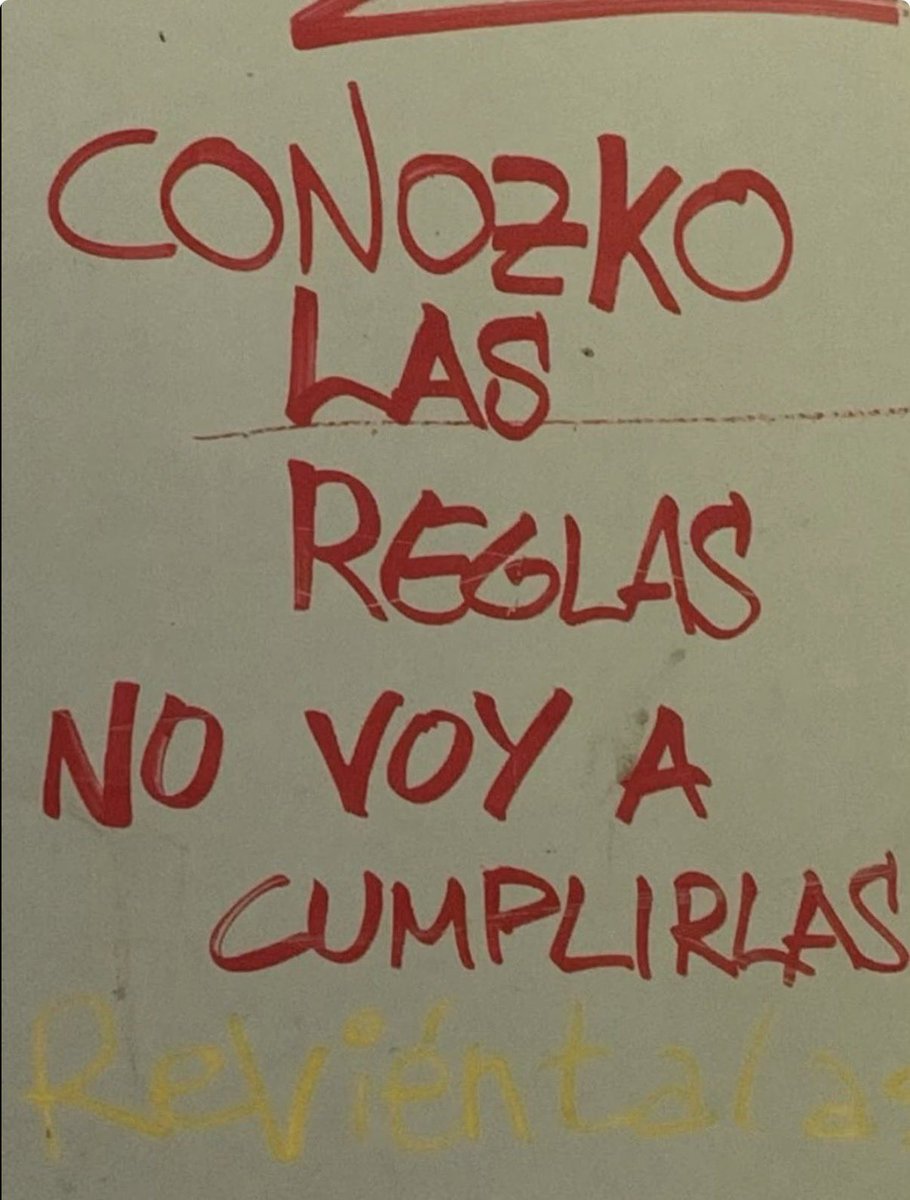 CONOZKO
LAS
REGLAS
NO VOY A
CUMPLIRLAS
Reviéntalas